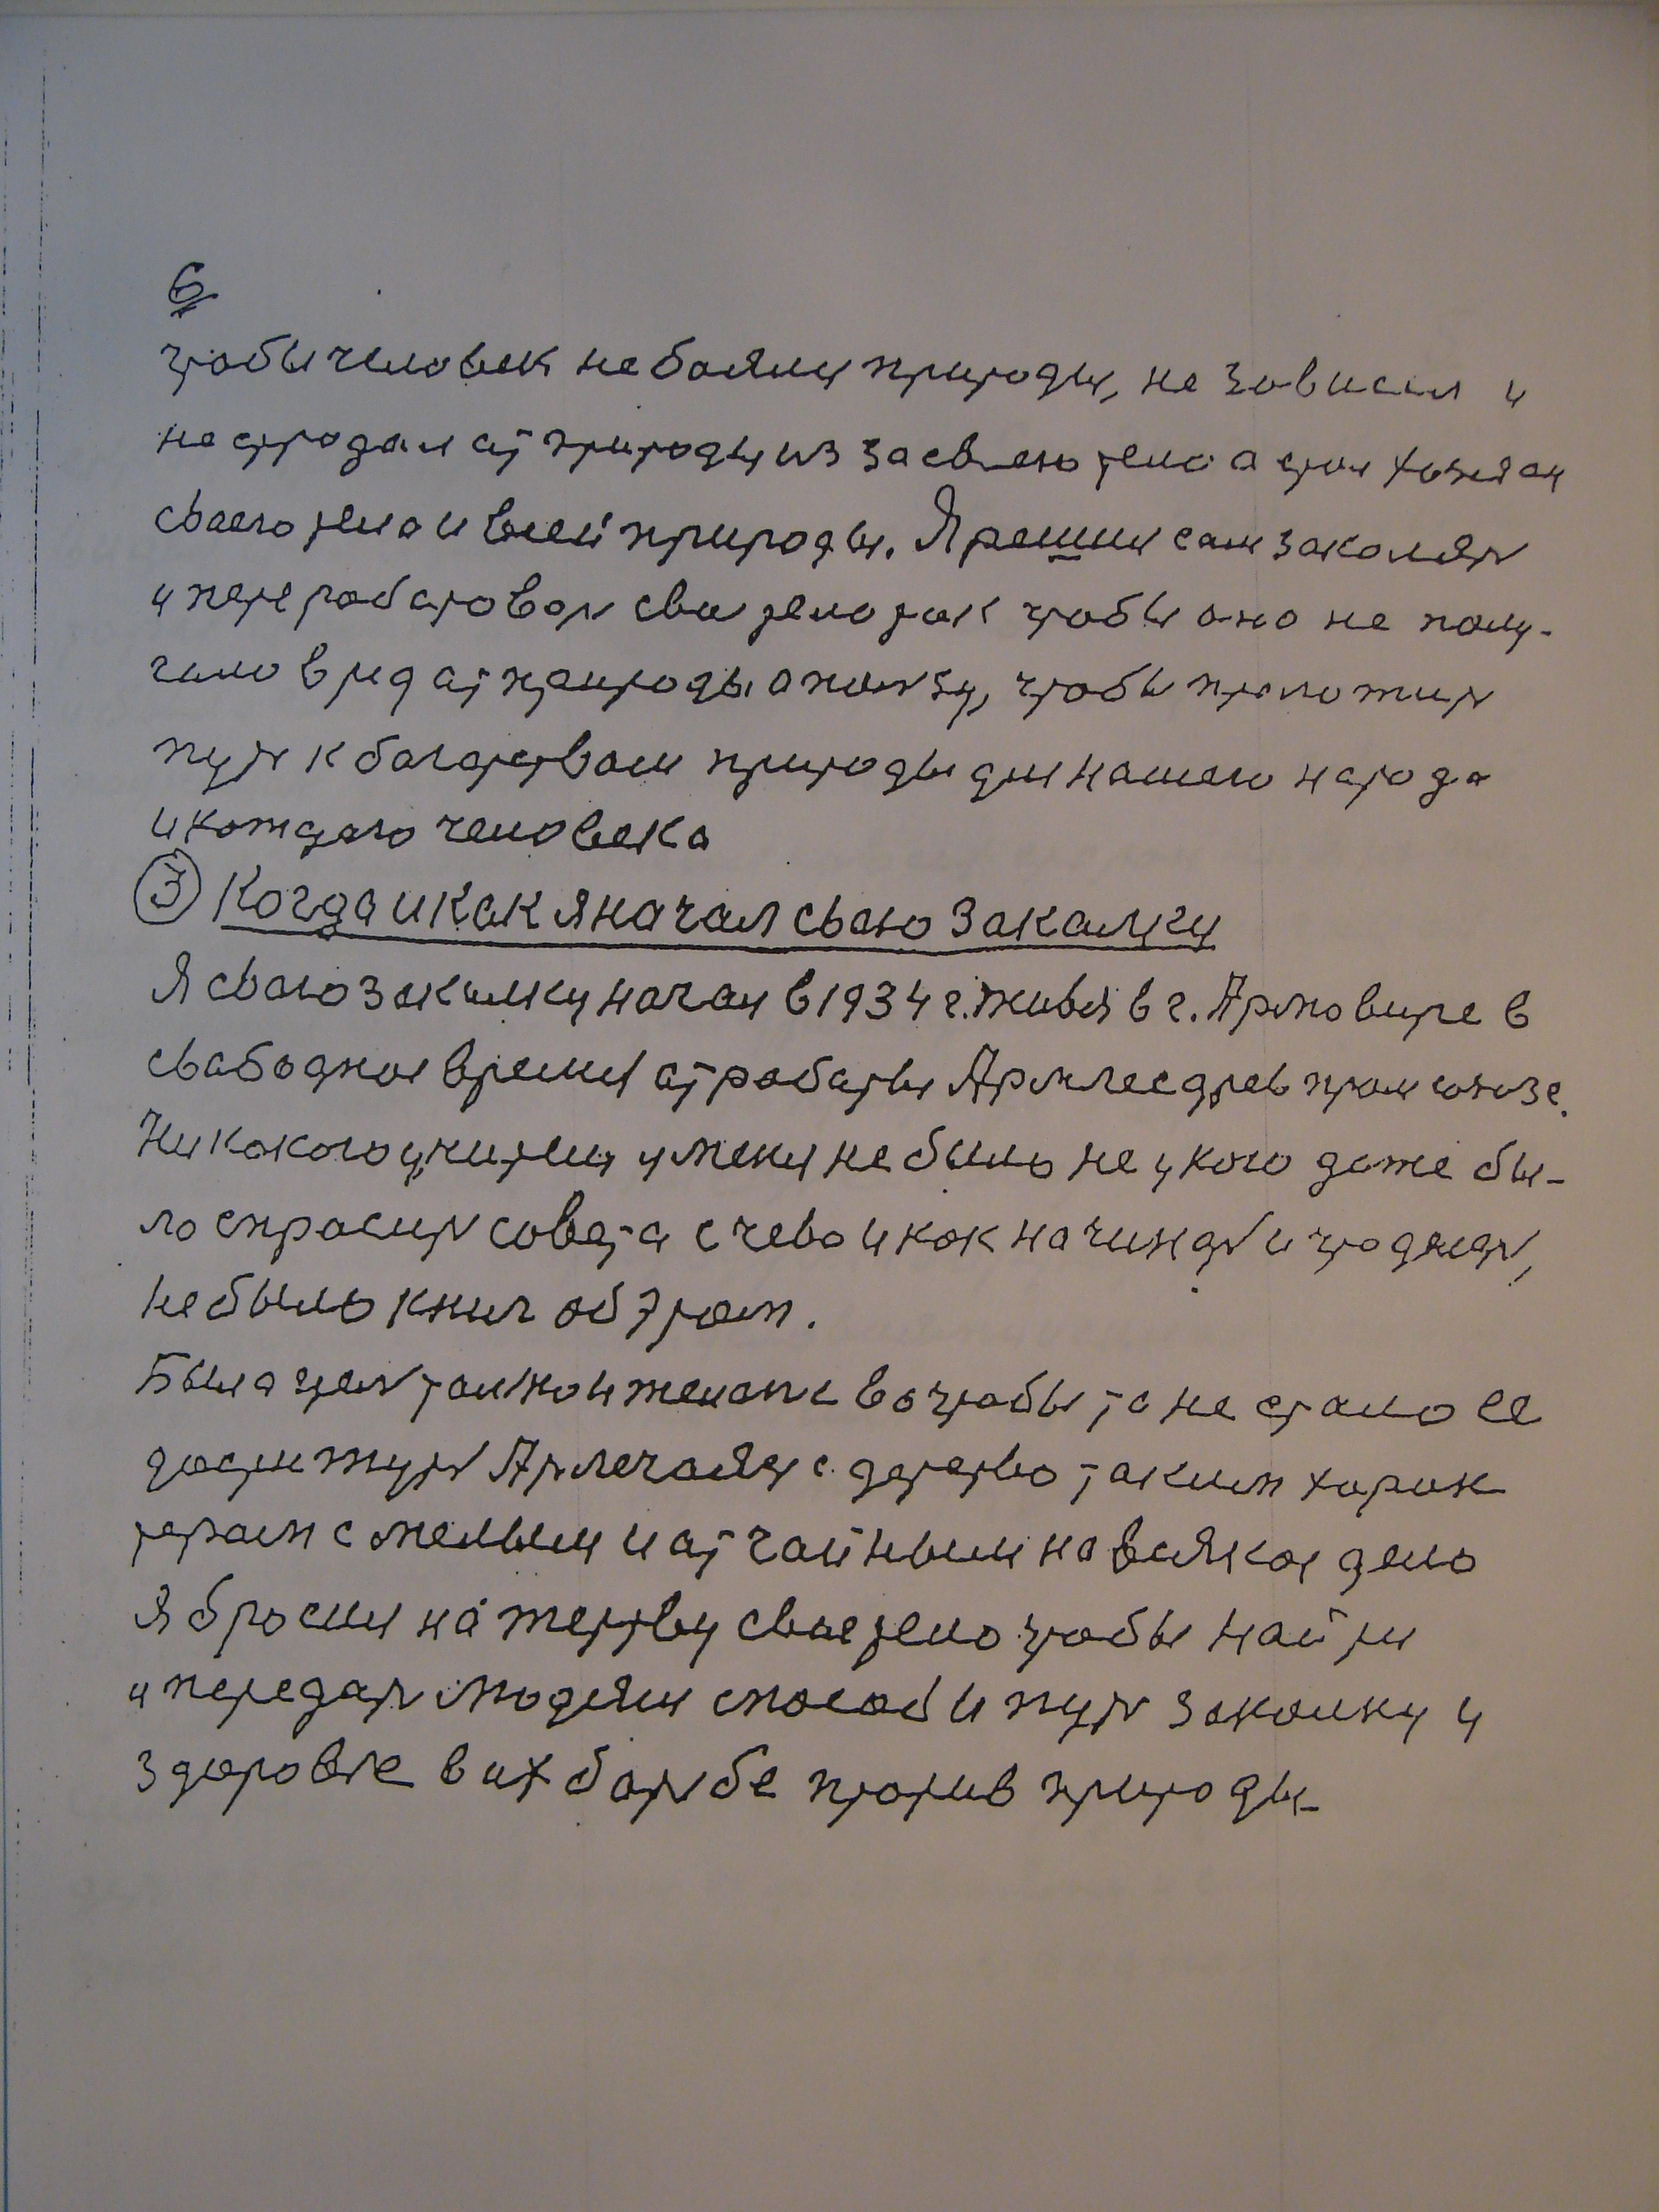 6
чтобы человек не боялся природы, не зависил и
не стродал от природы из за своего тело а стал хозяен
своего тела и всей природы. Я решил сам законлять
и переработовать свое тело так чтобы оно не полу-
чило вред от природы а пользу, чтобы проложить
путь к богатствам природы для нашего народа
и кождого человека
③ Когда и как я начал свою закалку
Я свою закалку начал в 1934 г. живя в г. Армовире в
свабодное время от работы Армлесдревпромсоюзе.
Ни какого учителя у меня не было не у кого даже бы-
ло спросить совета с чево и как начинать и что делать,
не было книг об этом.
Была цель только и желание во чтобы то не стало ее
достигнуть Отлечался с детство таким харак
тером смелым и отчайным на всякое дело
Я бросил на жертву свое тело чтобы найти
и передать людям способ и путь закалку и
здоровье в их борьбе против природы